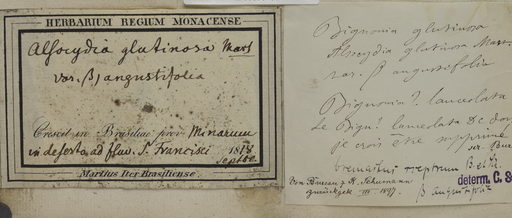 HERBARIUM REGIUM MONACENSE
Alsocydia glutinosa Mart
var. β) angustifolia
Crescit in Brasiliae prov. Minarum
in deserto ad fluv. S. Francisci 1818
Septbr
Martius Iter Brasiliense.
Bignonia glutinosa
Alsocydia glutinosa Mart.
var. β angustifolia
Bignonia? lanceolata
Le Bign? lanceolata De
je crois être supprimé
ser. Bur
β angustifolia
Von Bureau z. K. Schumann
zurückgek. III. 1897.
determ. C. S